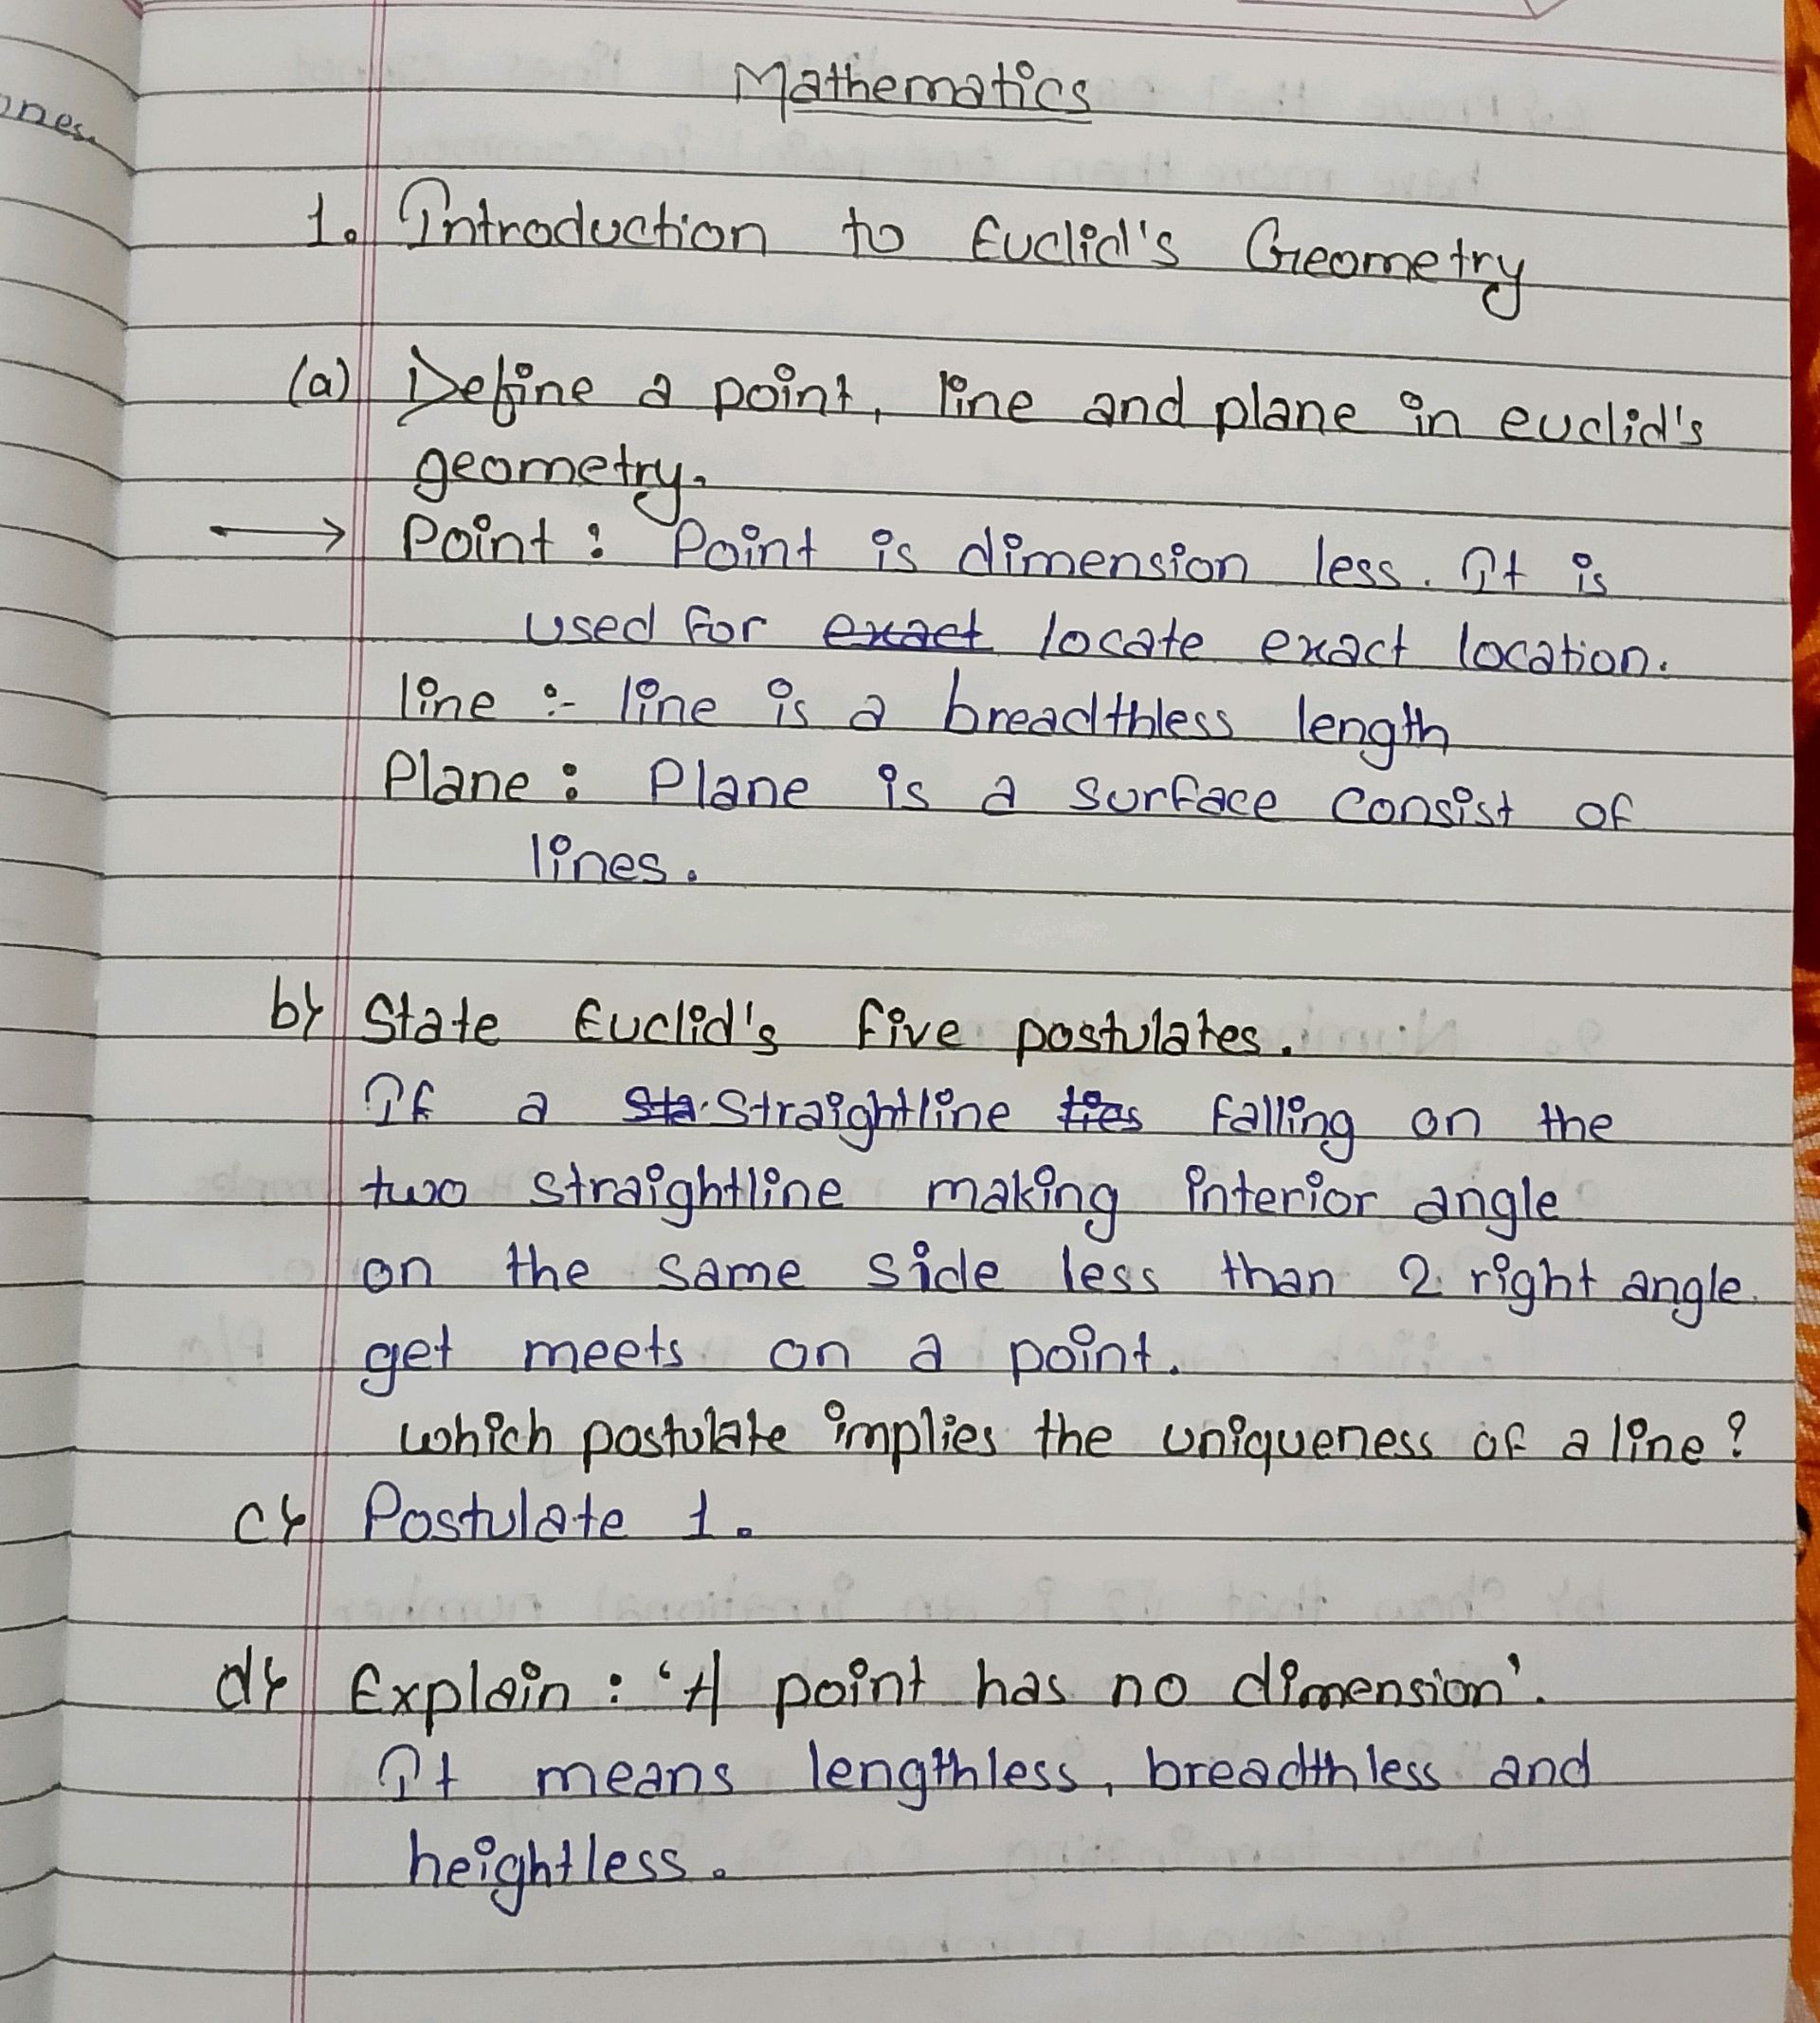 ones.
Mathematics
1. Introduction to Euclid's Geometry
(a) Define a point, line and plane in euclid's
geometry.
→ Point : Point is dimension less. It is
used for exact locate exact location.
line :- line is a breadthless length
Plane : Plane is a surface consist of
lines.
b) State Euclid's five postulates.
If a sta straightline ties falling on the
two straightline making interior angle
on the same side less than 2 right angle
get meets on a point.
which postulate implies the uniqueness of a line?
c) Postulate 1.
d) Explain : 'A point has no dimension'.
It means lengthless, breadthless and
heightless.